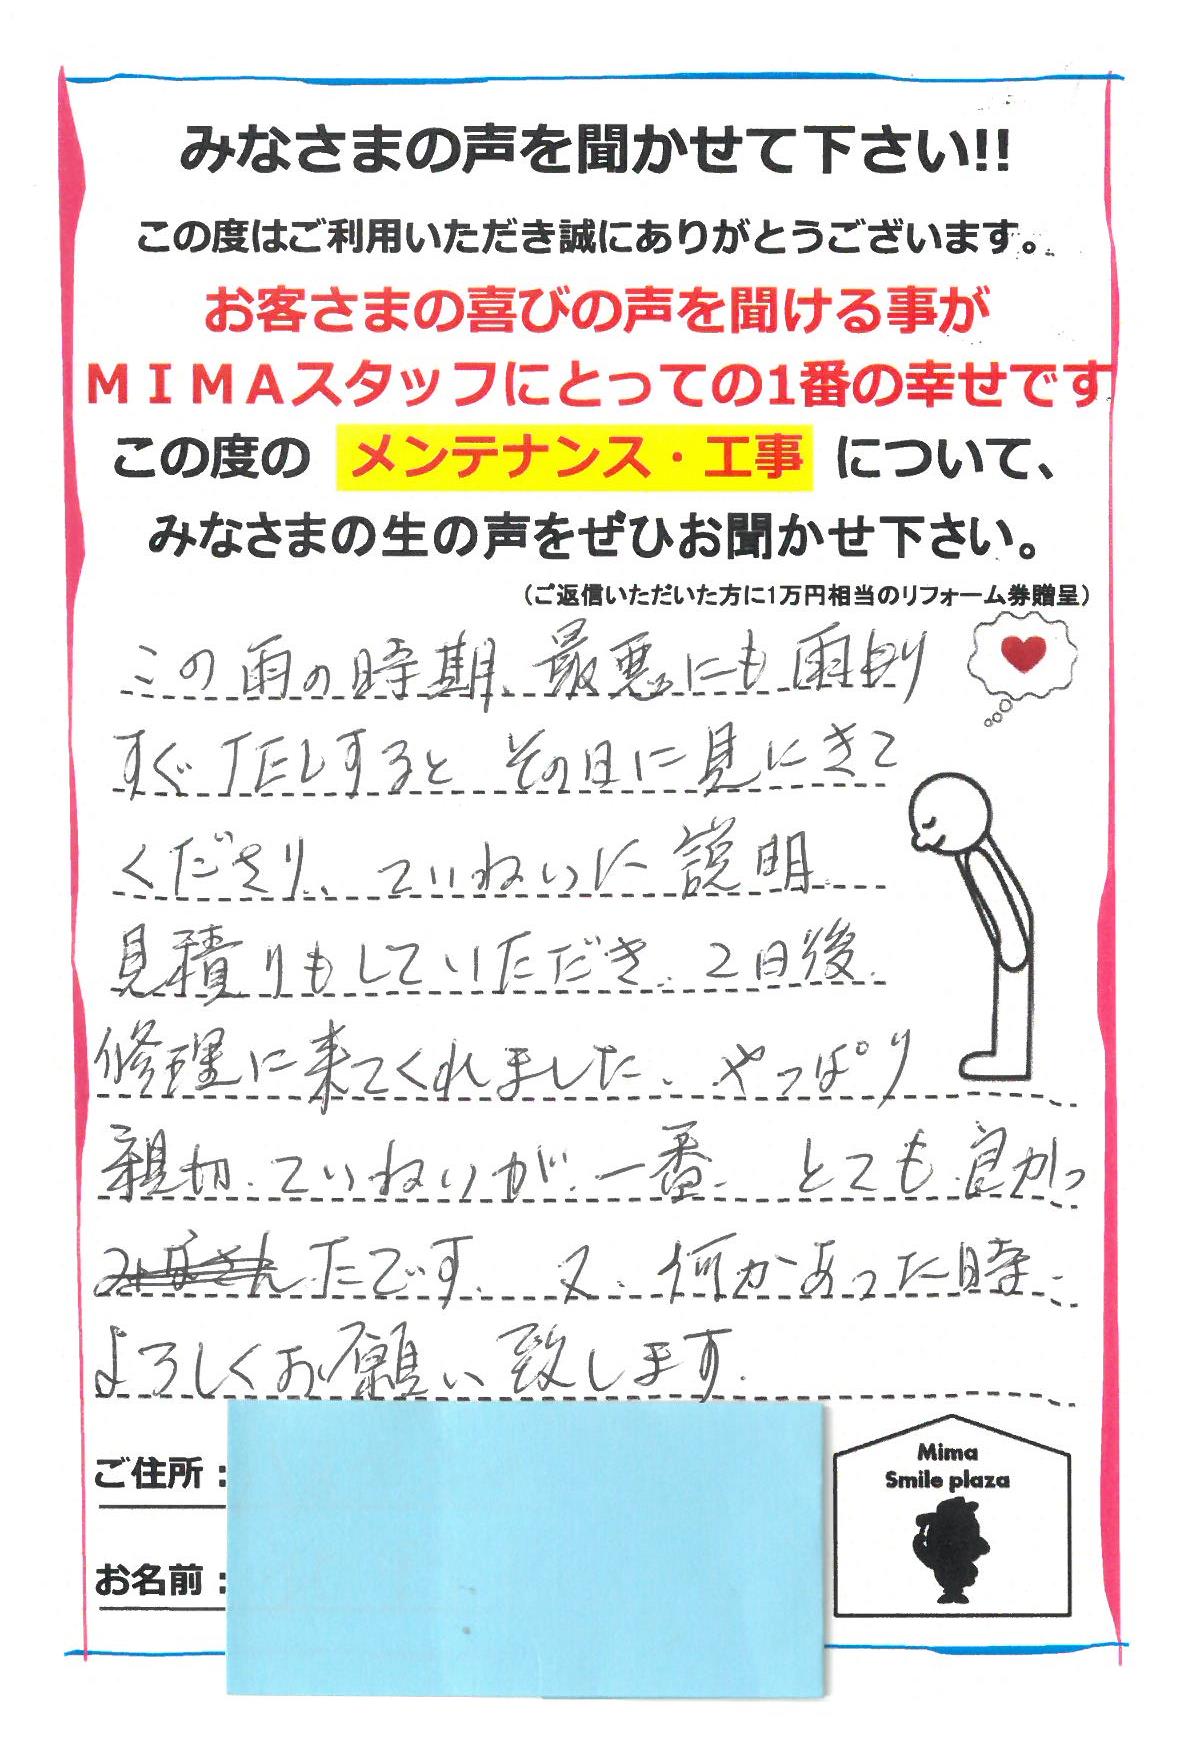 みなさまの声を聞かせて下さい!!
この度はご利用いただき誠にありがとうございます。
お客さまの喜びの声を聞ける事が
ＭＩＭＡスタッフにとっての1番の幸せです
この度の メンテナンス・工事 について、
みなさまの生の声をぜひお聞かせ下さい。
（ご返信いただいた方に1万円相当のリフォーム券贈呈）
この雨の時期、最悪にも雨
すぐTELすると その日に見にきて
くださり、ていねいに説明
見積りもしていただき、2日後、
修理に来てくれました。やっぱり
親切、ていねいが、一番。とても良かっ
たです。又、何かあった時、
よろしくお願い致します。
ご住所：
お名前：
Mima
Smile plaza